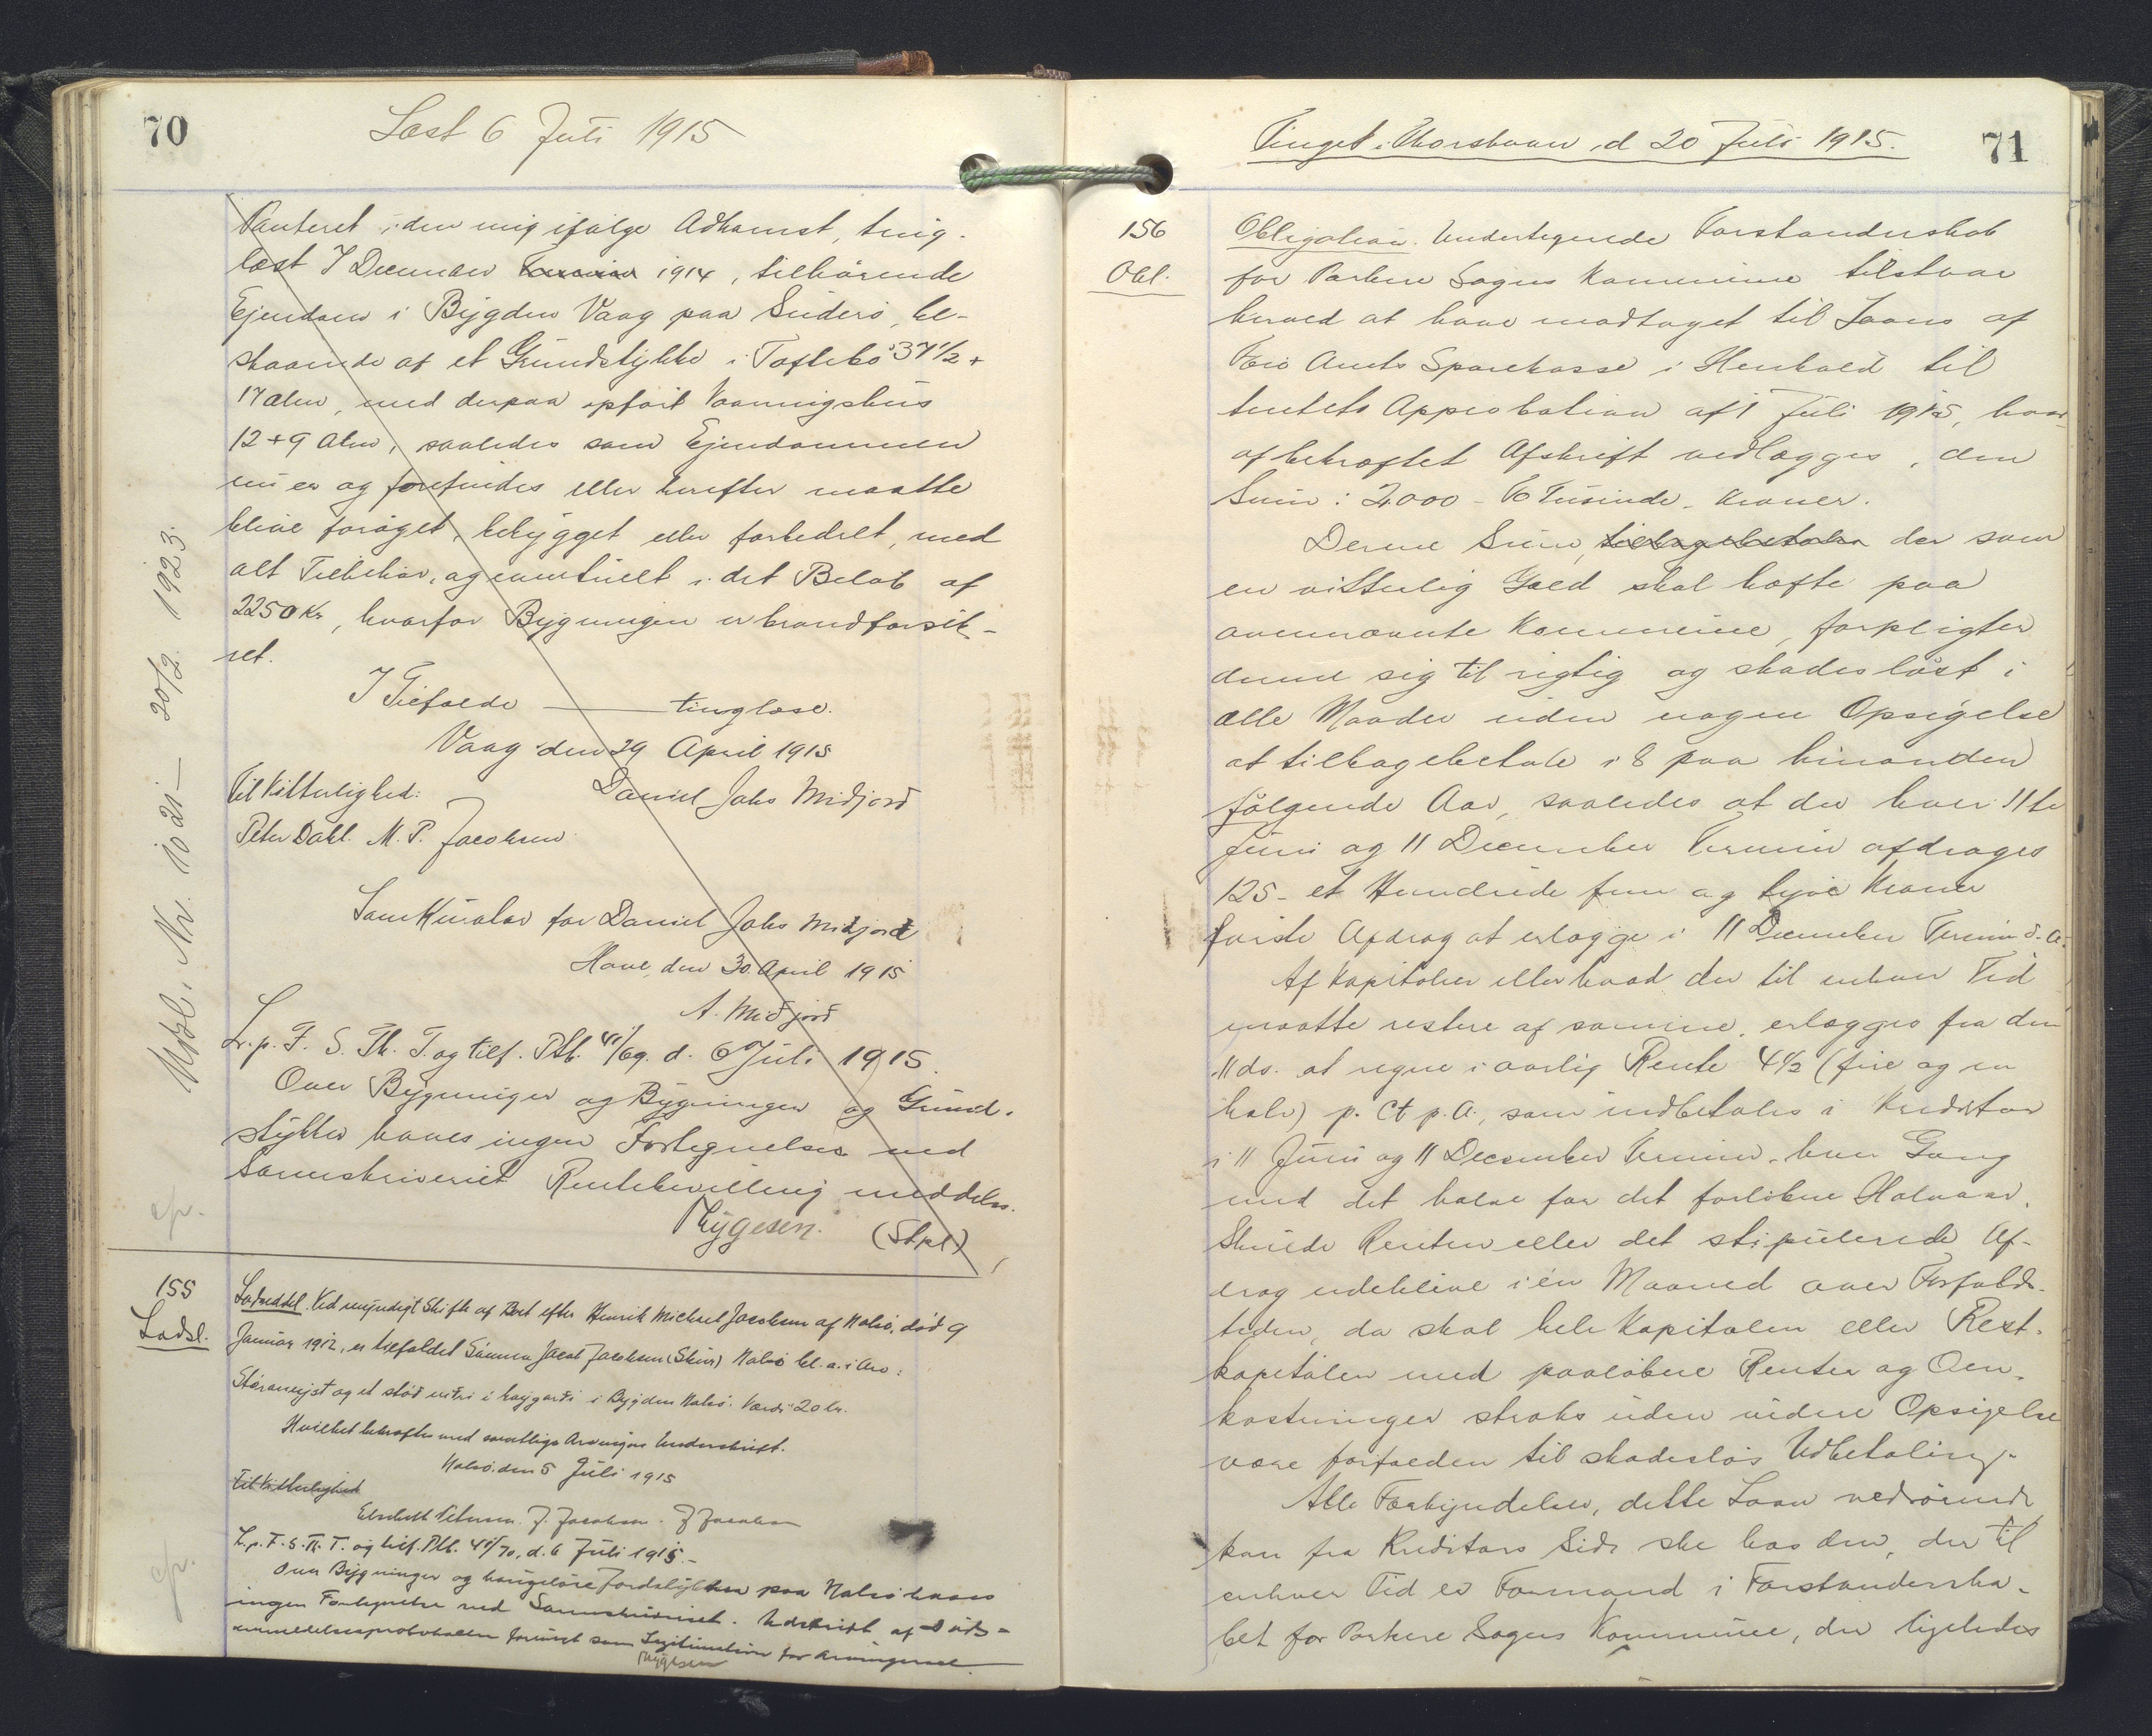 70
Læst 6 Juli 1915
Panteret i den mig ifølge Adkomst, ting-
læst 7 December Termin 1914, tilhørende
Ejendom i Bygden Vaag paa Suderø, be-
staaende af et Grundstykke i Toftebø 37 1/2 +
17 Alen, med derpaa opført Vaaningshus
12 + 9 Alen, saaledes som Ejendommen
nu er og forefindes eller herefter maatte
blive forøget, bebygget eller forbedret, med
alt Tilbehør, og eventuelt i det Beløb af
2250 Kr, hvorfor Bygningen er brandforsik-
ret.
I Tilfælde ——— tinglæse.
Vaag den 29 April 1915
Til Vitterlighed:
Daniel Johs Midjord
Peter Dahl. M. P. Jacobsen.
Som Kurator for Daniel Johs Midjord
Hove, den 30 April 1915
A. Midjord
L. p. F. S. Th. T. og tilf. Ptb. 41/69. d. 6 Juli 1915.
Over Bygninger og Bygninger og Grund-
stykker haves ingen Fortegnelser ved
Sorenskriveriet Rentebevilling meddeles.
Thygesen. (Stpl)
Udsl. Nr. 1021 — 20/2 1923.
cf.
155
Lodsl.
Lodseddel. Ved myndigt Skifte af Boet efter Henrik Michael Jacobsen af Nolsø, død 9
Januar 1912, er tilfaldet Sønnen Jacob Jacobsen (Skúr) Nolsø bl. a. i Arv:
og et stød i i Bygden Nolsø. Værdi 20 kr.
Hvilket bekræftes med samtlige Arvingers Underskrift.
Nolsø, den 5 Juli 1915
Til Vitterlighed
Elsebeth Petersen. J. Jacobsen. J Jacobsen
L. p. F. S. Th. T. og tilf. Ptb. 41/70, d. 6 Juli 1915.-
Over Bygninger og haugeløse Jordstykker paa Nolsø haves
ingen Fortegnelse ved Sorenskriveriet. Udskrift af Døds-
anmeldelsesprotokollen forevist som Legitimation for Arvingerne.
Thygesen
cf.
Tinget i Thorshavn, d 20 Juli 1915.
71
156
Obl.
Obligation. Undertegnede Forstanderskab
for Porkere Sogns Kommune tilstaar
herved at have modtaget til Laans af
Færø Amts Sparekasse i Henhold til
Amtets Approbation af 1 Juli 1915, hvor-
af bekræftet Afskrift vedlægges, den
Sum: 2000 - To Tusinde - Kroner.
Denne Sum, tilbagebetales der som
en vitterlig Gæld skal hæfte paa
ovennævnte Kommune, forpligter
denne sig til rigtig og skadesløst i
alle Maader uden nogen Opsigelse
at tilbagebetale i 8 paa hinanden
følgende Aar, saaledes at der hver 11te
Juni og 11 December Termin afdrages
125 - et Hundrede fem og tyve Kroner
første Afdrag at erlægge i 11 December Termin d. A.
Af Kapitalen eller hvad der til enhver Tid
maatte restere af samme, erlægges fra den
11 ds. at regne i aarlig Rente 4 1/2 (fire og en
halv) p. Ct p. a., som indbetales i Kreditor
i 11 Juni og 11 December Termin, hver Gang
med det halve for det forløbne Halvaar.
Skulde Renten eller det stipulerede Af-
drag udeblive i én Maaned over Forfalds-
tiden, da skal hele Kapitalen eller Rest-
kapitalen med paaløbne Renter og Om-
kostninger straks uden videre Opsigelse
være forfalden til skadesløs Udbetaling.
Alle Forkyndelser, dette Laan vedrørende
kan fra Kreditors Side ske hos den, der til
enhver Tid er Formand i Forstanderska-
bet for Porkere Sogns Kommune, der ligeledes